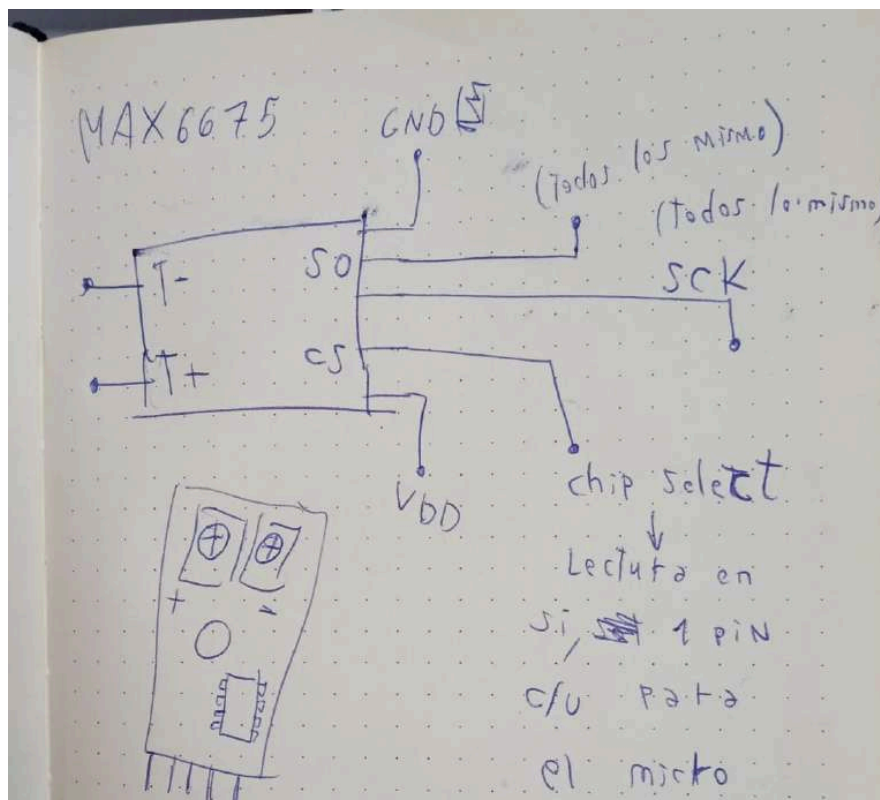 MAX6675
GND
(Todos los mismo)
(Todos lo mismo)
T-
SO
SCK
T+
CS
VDD
chip select
↓
Lectura en
si, 1 PIN
c/u para
el micro
+ -